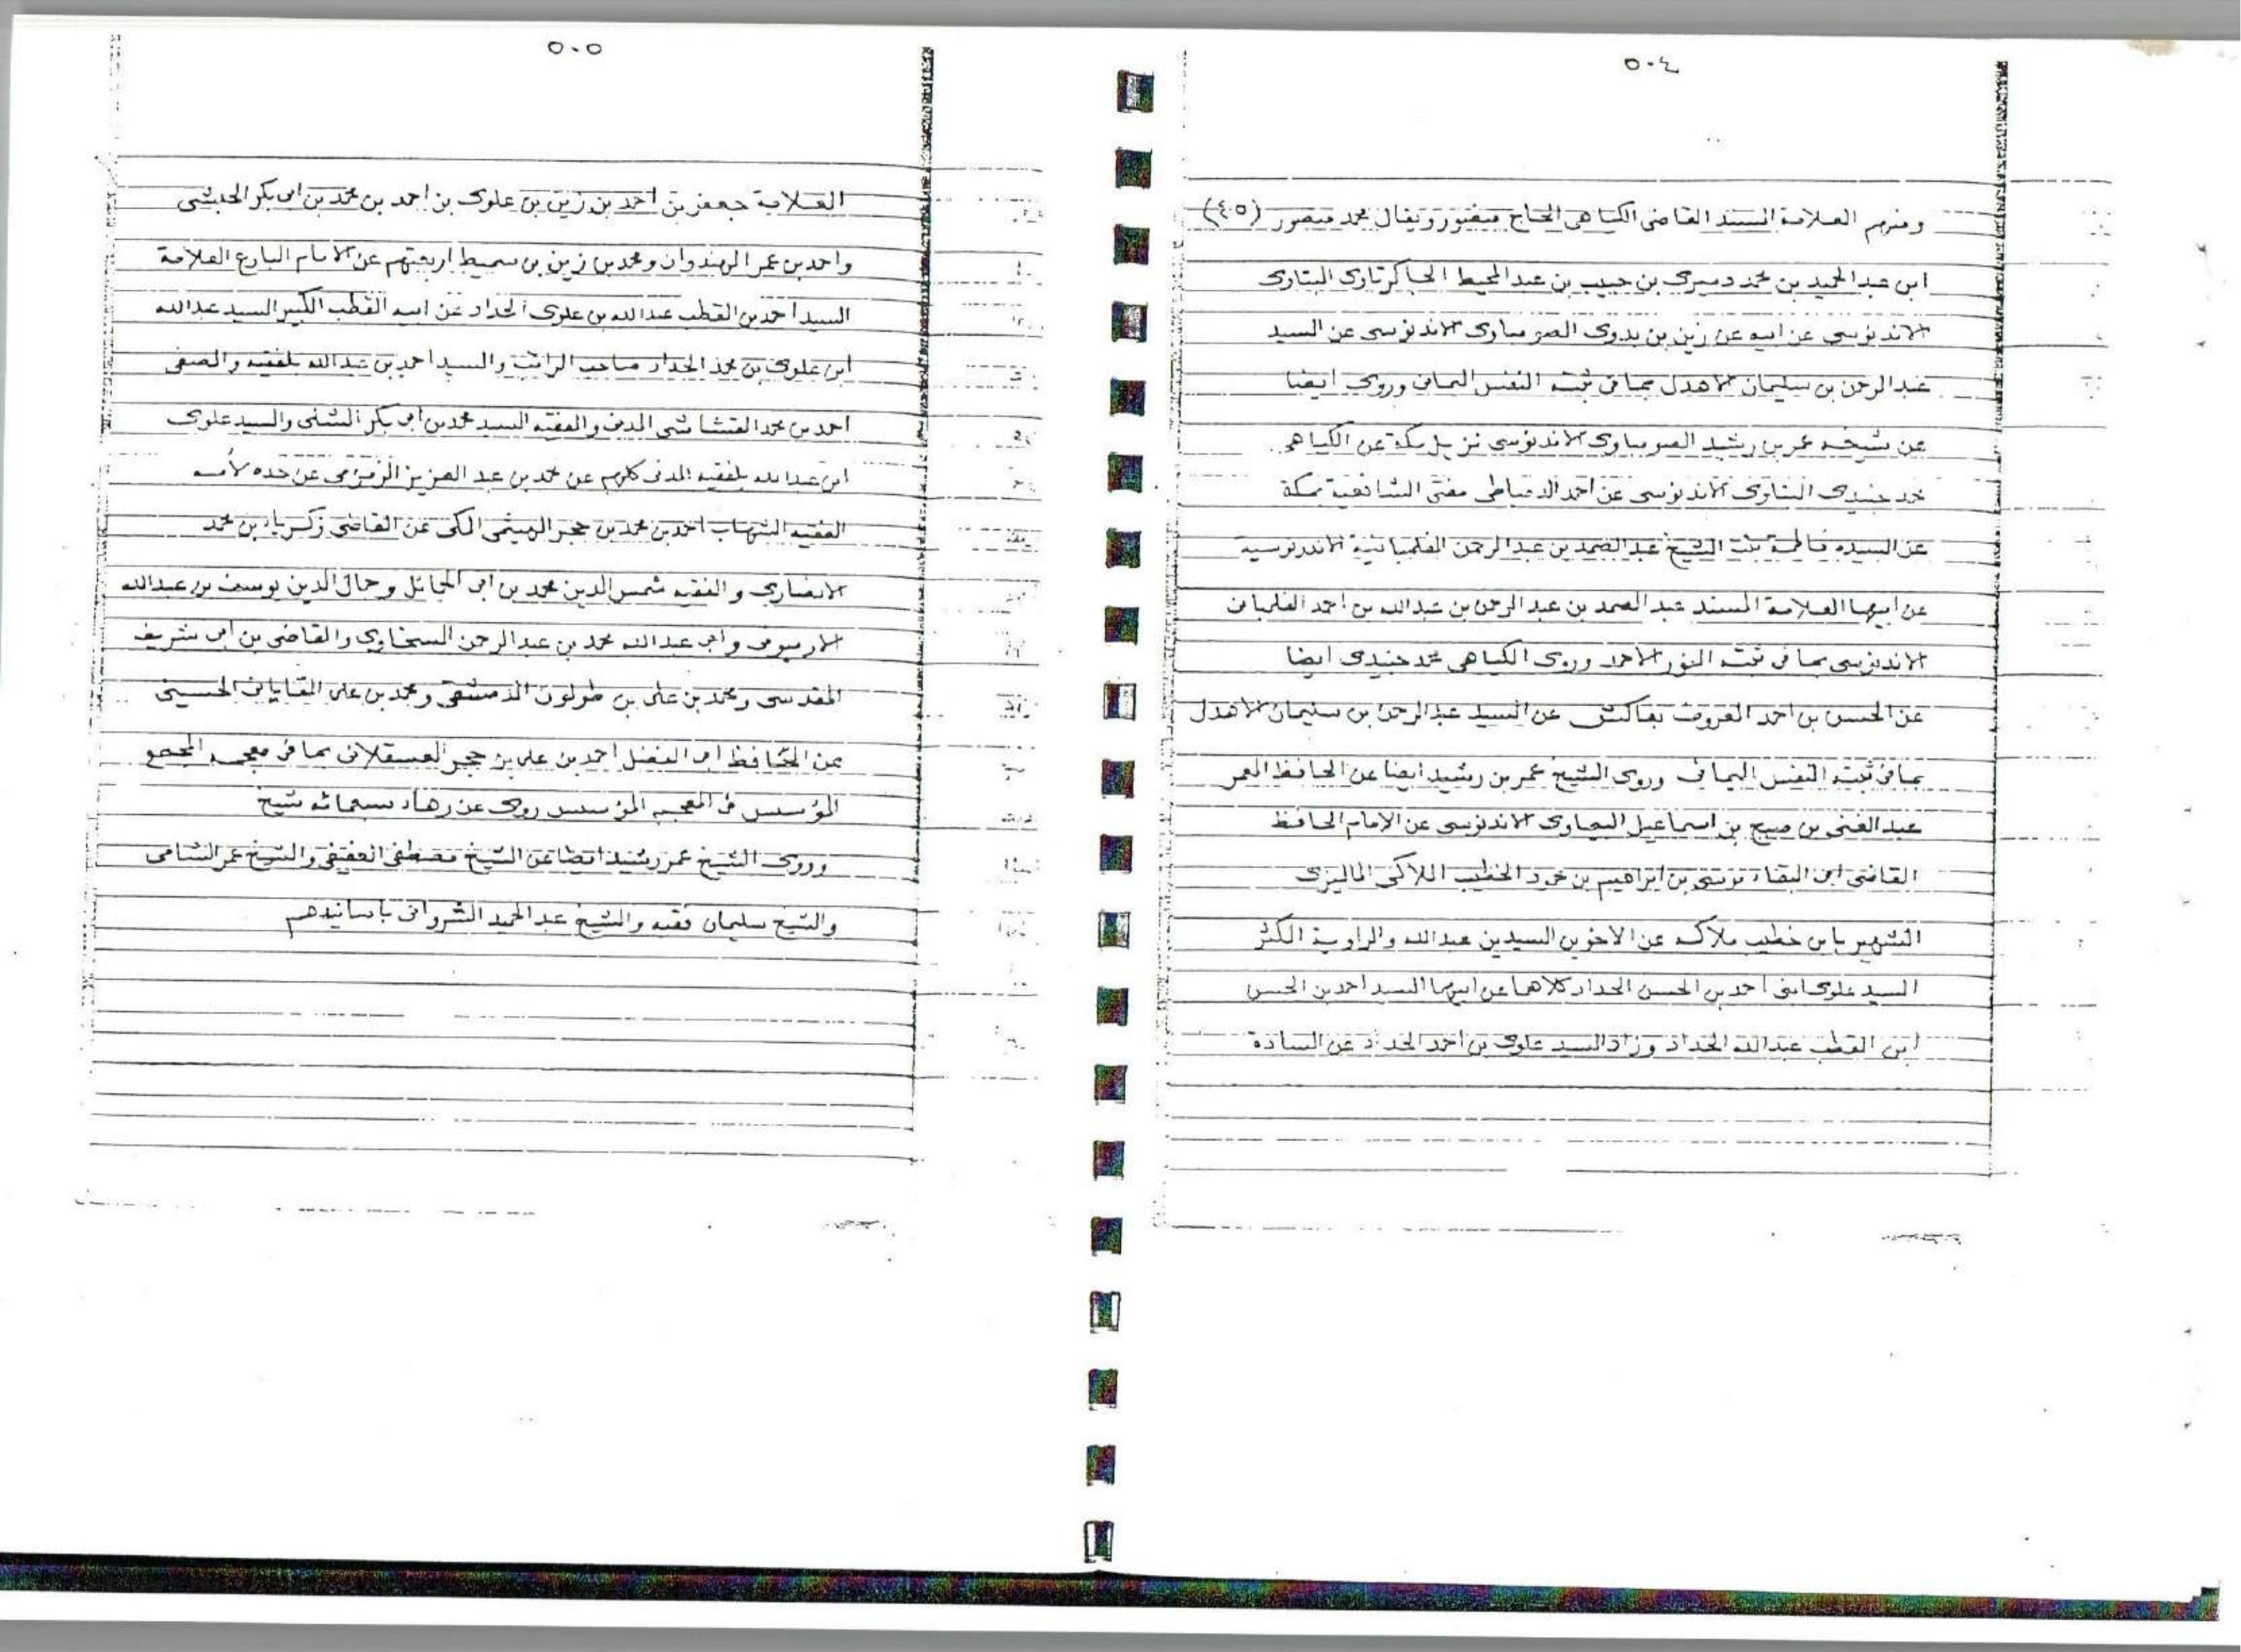 ٥٠٤
ومنهم العلامة المسند القاضى الكياهى الحاج منصور ويقال محمد منصور (٤٥)
ابن عبد الحميد بن محمد دميرى بن حبيب بن عبد المحيط الجاكرتاوى البتاوى
الاندنوسي عن ابيه عن زين بن بدوى الصومباوى الاندنوسى عن السيد
عبد الرحمن بن سليمان الاهدل بما فى ثبته النفس اليمانى وروى ايضا
عن شيخه عمر بن رشيد الصومباوى الاندنوسى نزيل مكة عن الكياهى
محمد جنيدى البتاوى الاندنوسى عن احمد الدمياطى مفتى الشافعية بمكة
عن السيده فاطمة بنت الشيخ عبد الصمد بن عبد الرحمن الفلمبانية الاندنوسية
عن ابيها العلامة المسند عبد الصمد بن عبد الرحمن بن عبد الله بن احمد الفلمبانى
الاندنوسى بما فى ثبته النور الاحمد وروى الكياهى محمد جنيدى ايضا
عن الحسن بن احمد المعروف بعاكش عن السيد عبد الرحمن بن سليمان الاهدل
بما فى ثبته النفس اليمانى وروى الشيخ عمر بن رشيد ايضا عن الحافظ المعمر
عبد الغنى بن صبيح بن اسماعيل البيماوى الاندنوسى عن الإمام الحافظ
القاضى ابى البقاء موسى بن ابراهيم بن الخطيب الملاكى الماليزى
الشهير بابن خطيب ملاك عن الاخوين السيدين عبد الله والراوية المكثر
السيد علوى ابنى احمد بن الحسن الحداد كلاهما عن ابيهما السيد احمد بن الحسن
ابن القطب عبد الله الحداد وزاد السيد علوى بن احمد الحداد عن السادة
٥٠٥
العلامة جعفر بن احمد بن زين بن علوى بن احمد بن محمد بن ابى بكر الحبشى
واحمد بن عمر الهندوان ومحمد بن زين بن سميط اربعتهم عن الامام البارع العلامة
السيد احمد بن القطب عبد الله بن علوى الحداد عن ابيه القطب الكبير السيد عبد الله
ابن علوى بن محمد الحداد صاحب الراتب والسيد احمد بن عبد الله بلفقيه والصفى
احمد بن محمد القشاشى المدنى والفقيه السيد محمد بن ابى بكر الشلى والسيد علوى
ابن عبد الله بلفقيه المدنى كلهم عن محمد بن عبد العزيز الزمزمى عن جده لأمه
الفقيه الشهاب احمد بن محمد بن حجر الهيتمى المكى عن القاضى زكرياء بن محمد
الانصارى والفقيه شمس الدين محمد بن ابى الحمائل وجمال الدين يوسف بن عبد الله
الارميونى وابى عبد الله محمد بن عبد الرحمن السخاوى والقاضى بن ابى شريف
المقدسى ومحمد بن على بن طولون الدمشقى ومحمد بن على القاياتى الحسينى
عن الحافظ ابى الفضل احمد بن على بن حجر العسقلانى بما فى معجمه المجمع
المؤسس فى المعجم المؤسس روى عن زهاء سبعمائه شيخ
وروى الشيخ عمر رشيد ايضا عن الشيخ مصطفى العفيفى والشيخ عمر الشامى
والشيخ سليمان فقيه والشيخ عبد الحميد الشروانى باسانيدهم